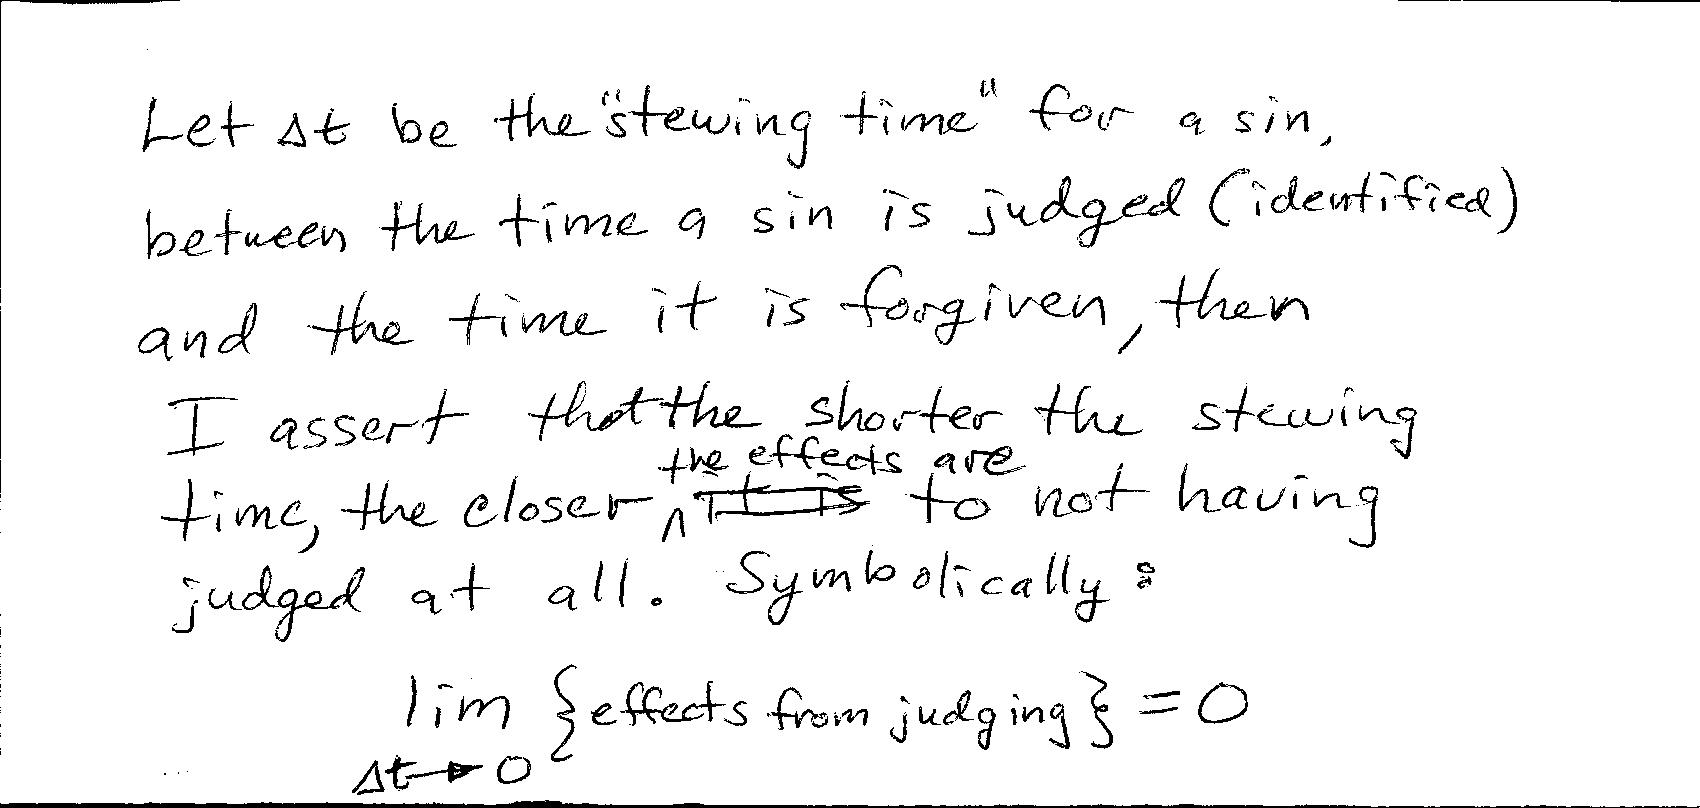 Let Δt be the "stewing time" for a sin,
between the time a sin is judged (identified)
and the time it is forgiven, then
I assert that the shorter the stewing
the effects are
time, the closer ^ it is to not having
judged at all. Symbolically:
lim {effects from judging} = 0
Δt→0